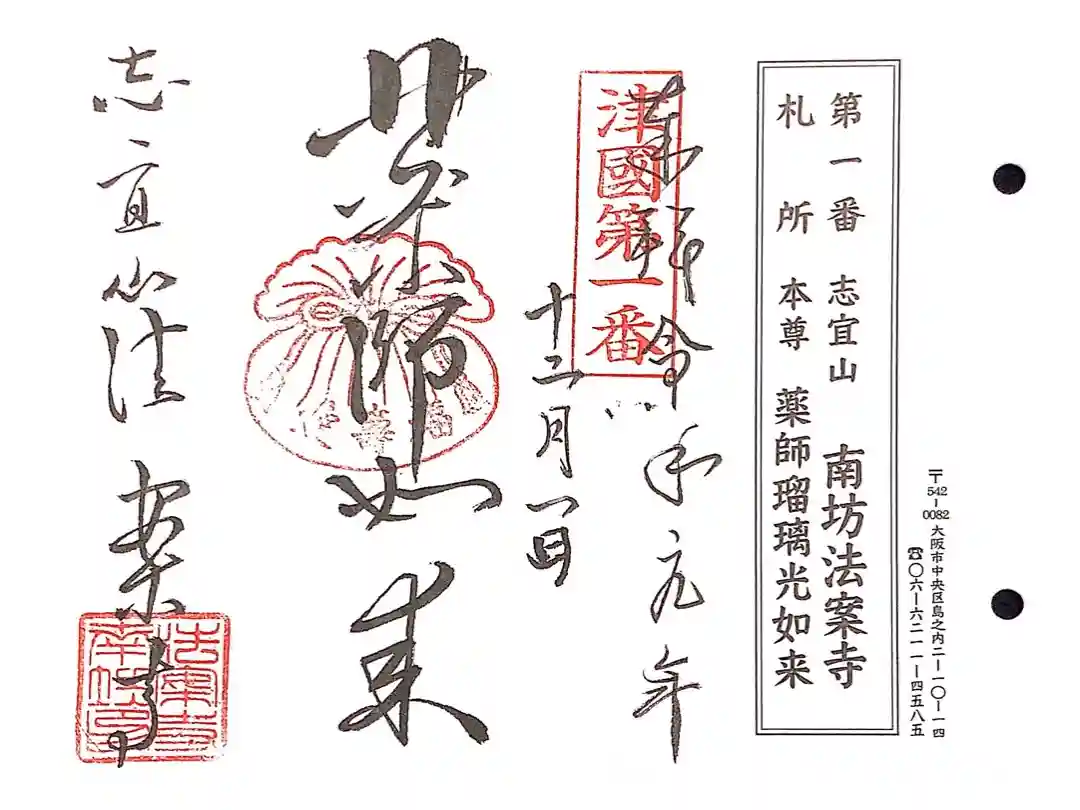 第一番 志宜山 南坊法案寺
札所 本尊 薬師瑠璃光如来
〒542-0082 大阪市中央区島之内二ー一〇ー一四
☎〇六ー六二一一ー四五八五
奉拝 令和元年
十二月一日
津國第一番
薬師如来
志宜山法案寺
法案寺